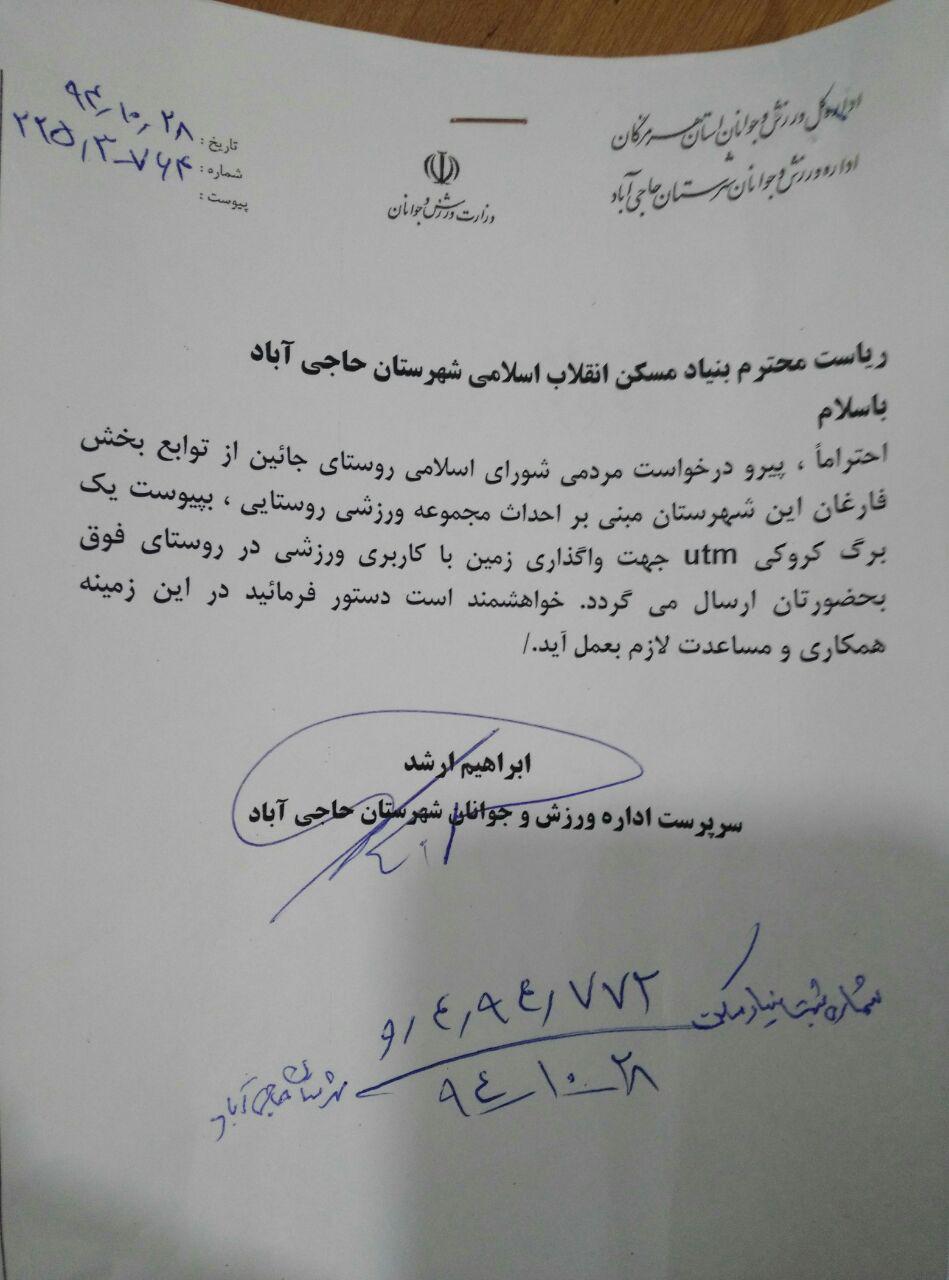 اداره کل ورزش و جوانان استان هرمزگان
اداره ورزش و جوانان شهرستان حاجی آباد
وزارت ورزش و جوانان
تاریخ : ۹۴٫۱۰٫۲۸
شماره : ۲۲۵٫۳-۷۶۴
پیوست :
ریاست محترم بنیاد مسکن انقلاب اسلامی شهرستان حاجی آباد
باسلام
احتراماً ، پیرو درخواست مردمی شورای اسلامی روستای جائین از توابع بخش
فارغان این شهرستان مبنی بر احداث مجموعه ورزشی روستایی ، بپیوست یک
برگ کروکی utm جهت واگذاری زمین با کاربری ورزشی در روستای فوق
بحضورتان ارسال می گردد. خواهشمند است دستور فرمائید در این زمینه
همکاری و مساعدت لازم بعمل آید./
ابراهیم ارشد
سرپرست اداره ورزش و جوانان شهرستان حاجی آباد
شماره ثبت بنیاد مسکن
و٫۴٫۹۴٫۷۷۲
۹۴-۱۰-۲۸
شهرستان حاجی آباد